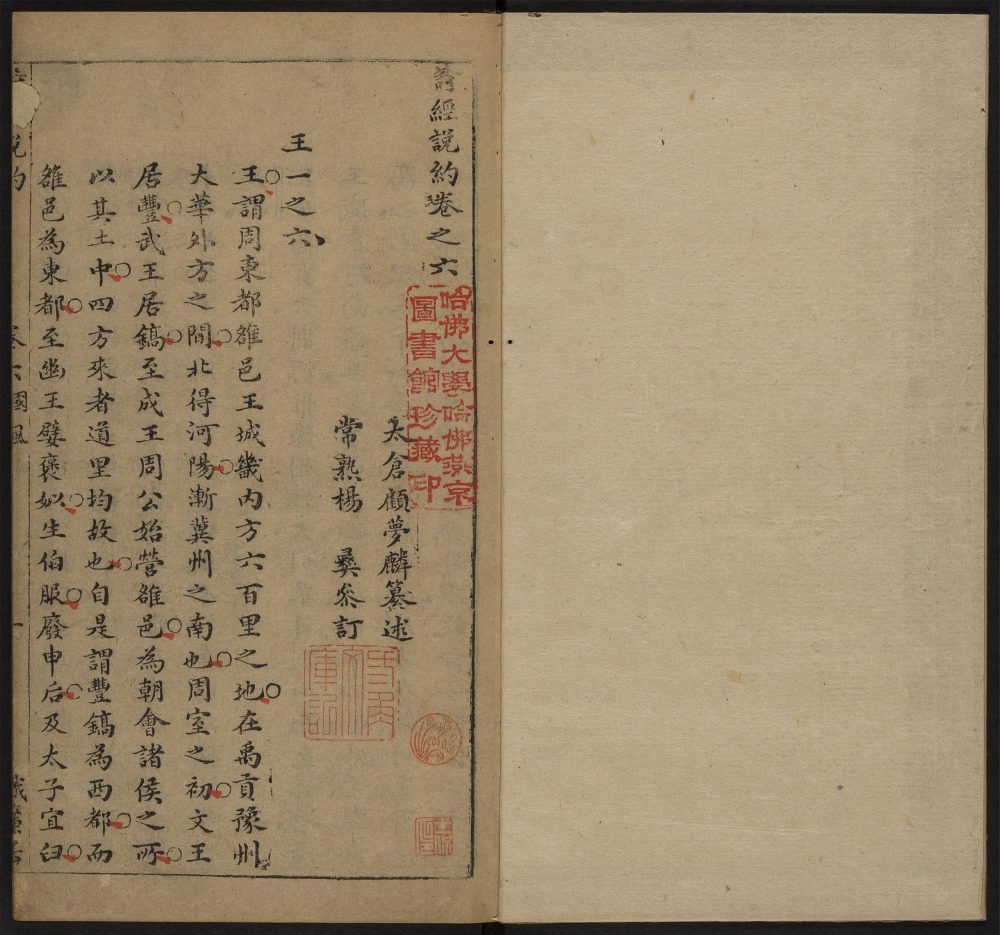 詩經說約卷之六
太倉顧夢麟纂述
常熟楊　彝參訂
王一之六
王謂周東都雒邑王城畿內方六百里之地在禹貢豫州
大華外方之間北得河陽漸冀州之南也周室之初文王
居豐武王居鎬至成王周公始營雒邑為朝會諸侯之所
以其土中四方來者道里均故也自是謂豐鎬為西都而
雒邑為東都至幽王嬖褒姒生伯服廢申后及太子宜臼
說約
卷六國風
一
哈佛大學哈佛燕京
圖書館珍藏印